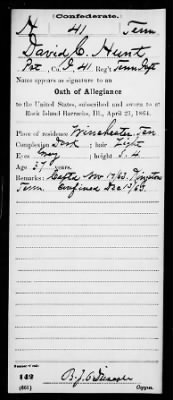 (Confederate.)
H 41 Tenn
David C. Hunt
Pvt, Co. I, 41 Reg't Tenn Inft
Name appears as signature to an
Oath of Allegiance
to the United States, subscribed and sworn to at
Rock Island Barracks, Ill., April 21, 1864.
Place of residence Winchester, Ten
Complexion Dark; hair Light
Eyes Grey; height 5, 4
Age 37 years.
Remarks: Captd Nov 17/63. Kingston
Tenn Confined Dec 15/63.
Number of roll:
142
(661) Copyist.